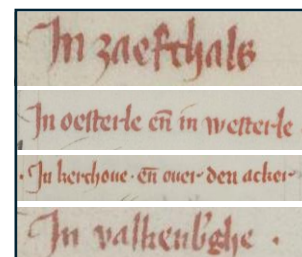 In zaefthals
In oesterle en̄ in westerle
· In kerchoue · en̄ ouer den acker
In valkenb'ghe ·